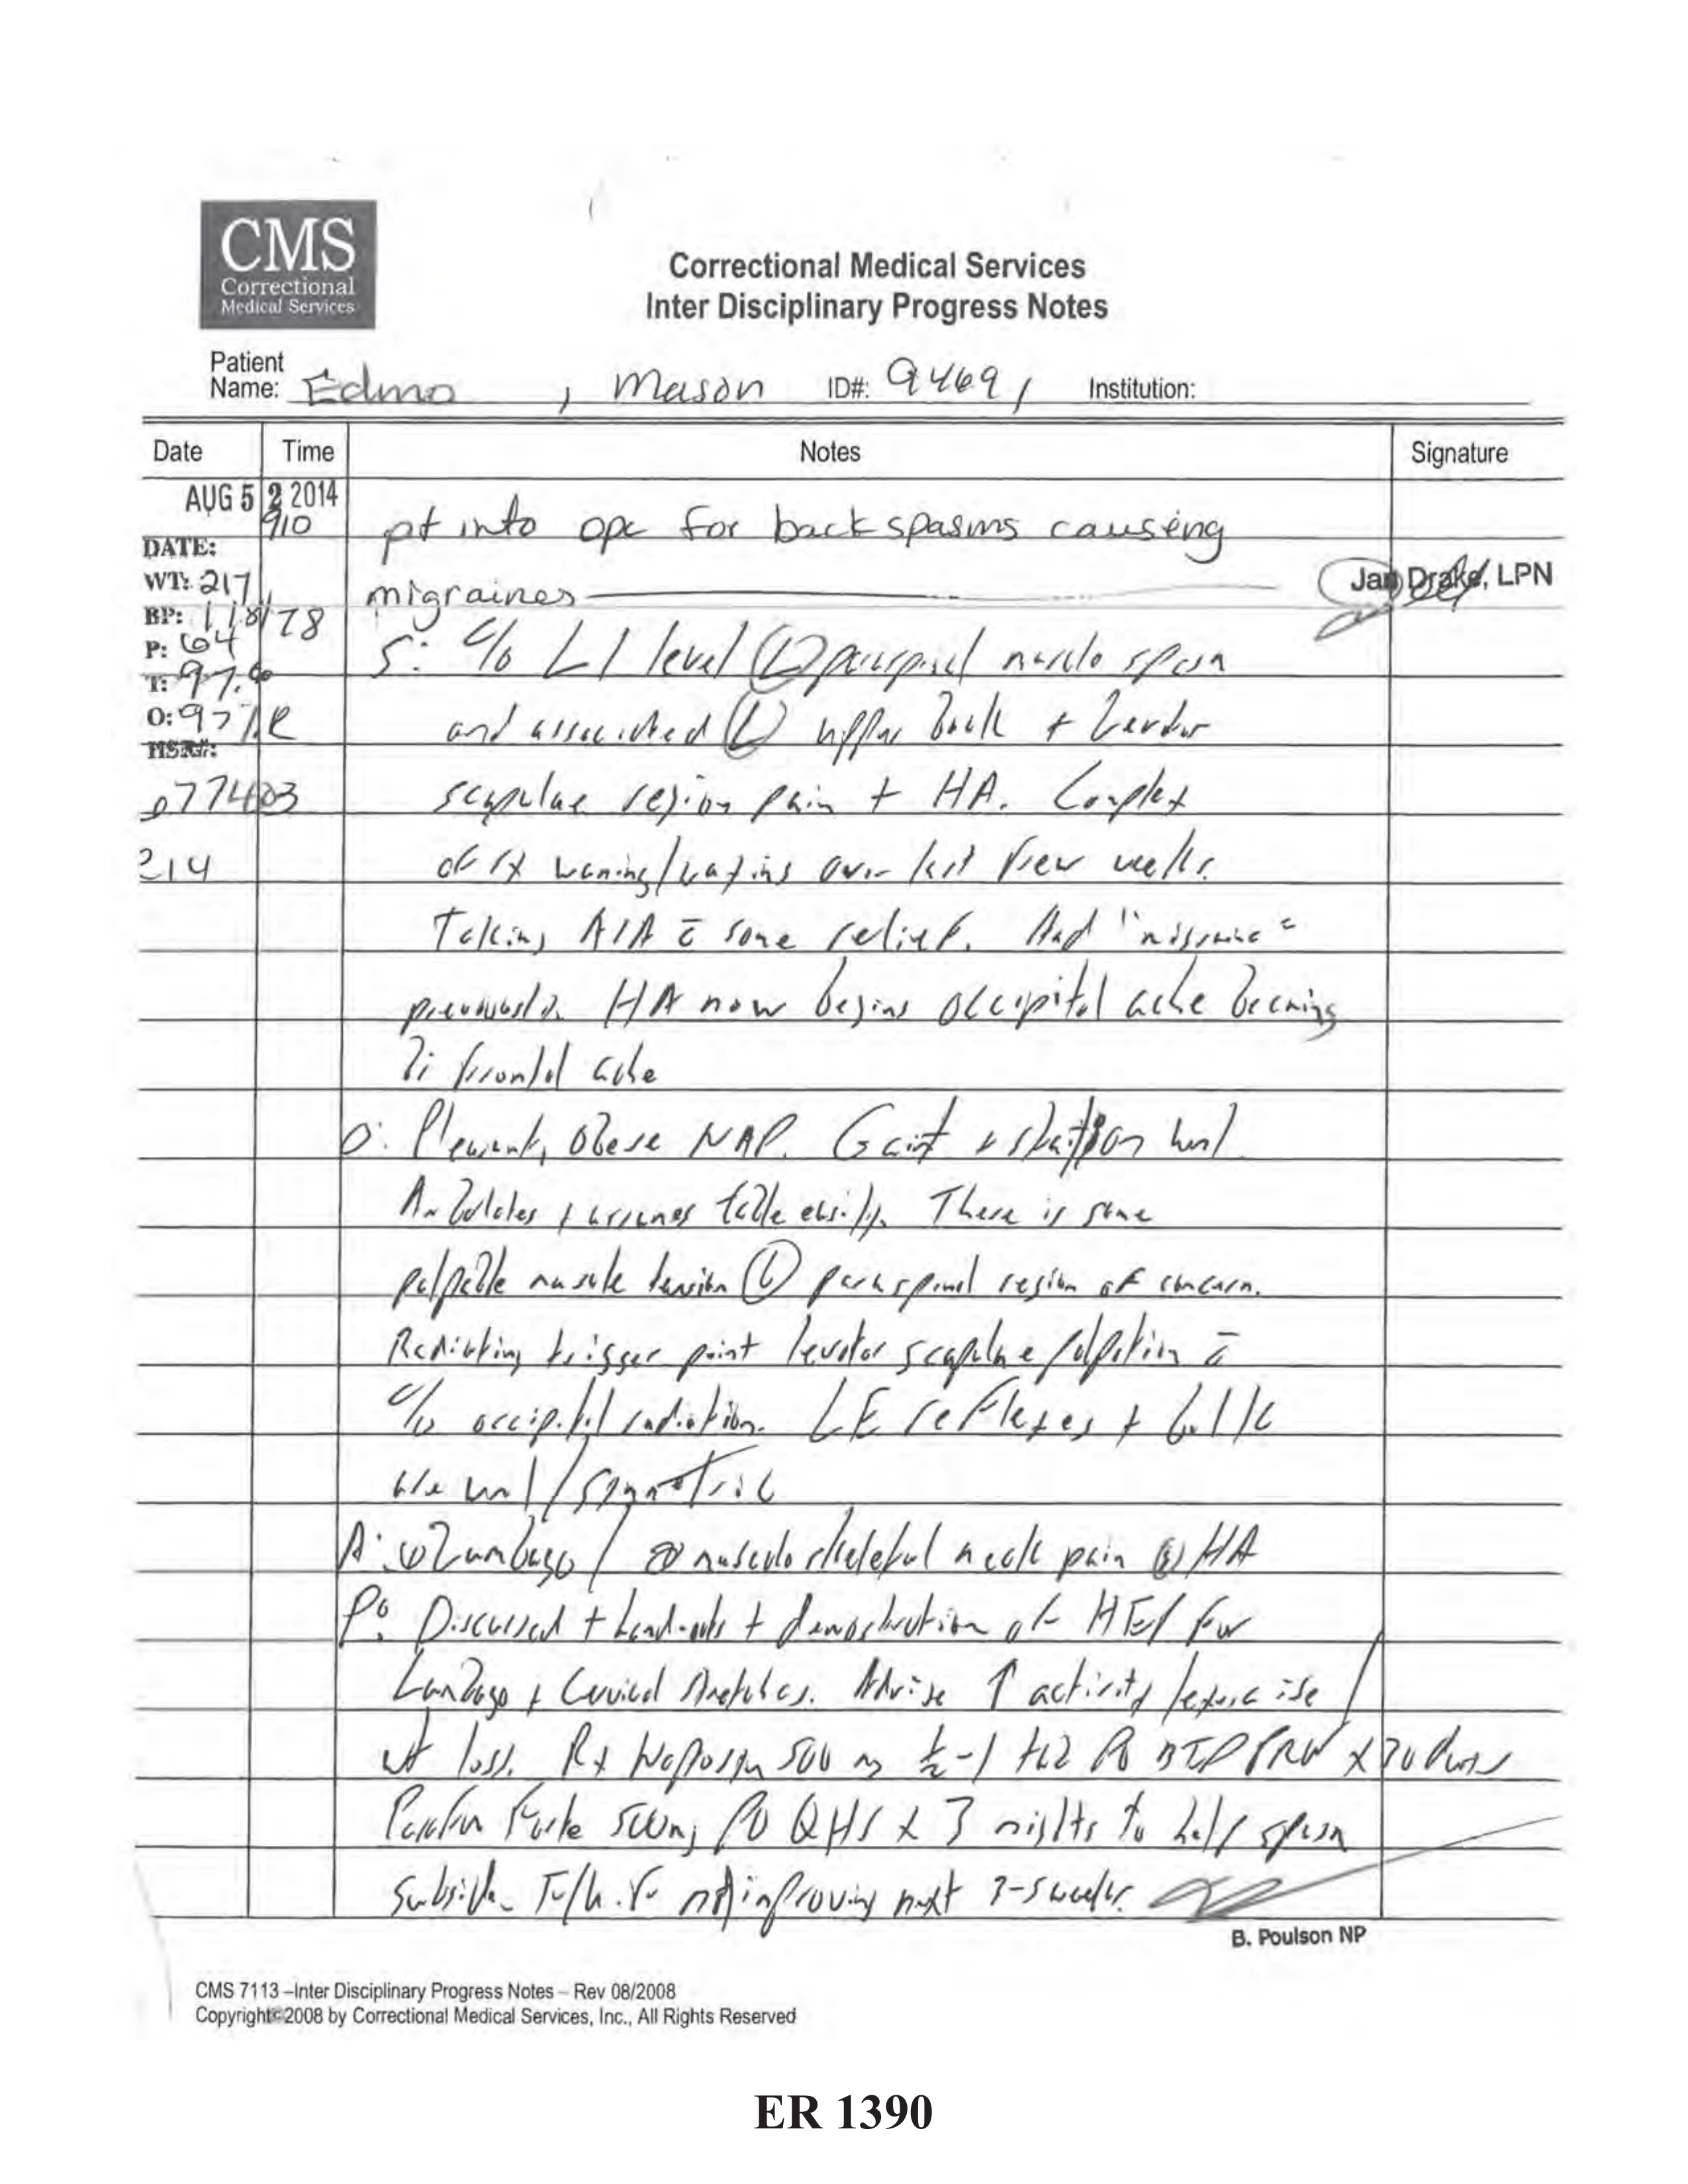 CMS
Correctional
Medical Services
Correctional Medical Services
Inter Disciplinary Progress Notes
Patient
Name: Edmo, Mason ID#: 94691 Institution:
Date Time Notes Signature
AUG 5 2 2014
910
pt into opc for back spasms causeing
DATE:
WT: 217
migraines
Jan Drake, LPN
BP: 118/78
P: 64
S: c/o L1 level (L) paraspinal muscle spasm
T: 97.
O: 97 R
and associated (L) upper back + levator
MSR#:
077403
scapulae region pain + HA. Complex
214
of sx waning/waxing over last few weeks.
Taking ASA c̄ some relief. Had "migraine"
previously. HA now begins occipital ache becoming
bi frontal ache
O: Pleasant, obese NAD. Gait + station wnl
Ambulates + assumes table easily. There is some
palpable muscle tension (L) paraspinal region of concern.
Radiating trigger point levator scapulae palpation c̄
c/o occipital radiation. LE reflexes +
are wnl/symmetric
A: (1) Lumbago / (2) musculoskeletal neck pain (3) HA
P: Discussed + hand-outs + demonstration of HEP for
Lumbago + Cervical stretches. Advise ↑ activity/exercise/
wt loss. Rx Naprosyn 500 mg ½-1 tab PO BID PRN x 30 days
Parafon Forte 500mg PO QHS x 3 nights to help spasm
subside. F/u if not improving next 3-5 weeks.
B. Poulson NP
CMS 7113 –Inter Disciplinary Progress Notes – Rev 08/2008
Copyright©2008 by Correctional Medical Services, Inc., All Rights Reserved
ER 1390